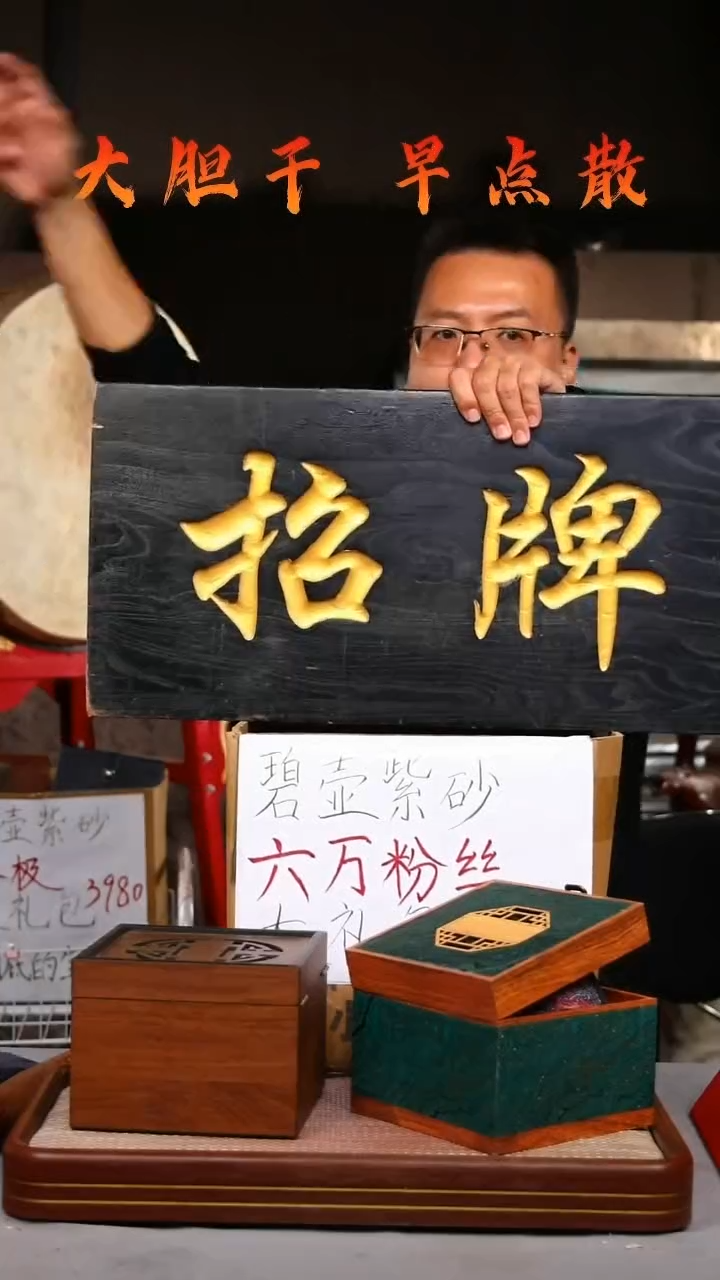 大胆干 早点散
招牌
碧壶紫砂
六万粉丝
大礼包
壶紫砂
极
礼包3980
底的宝